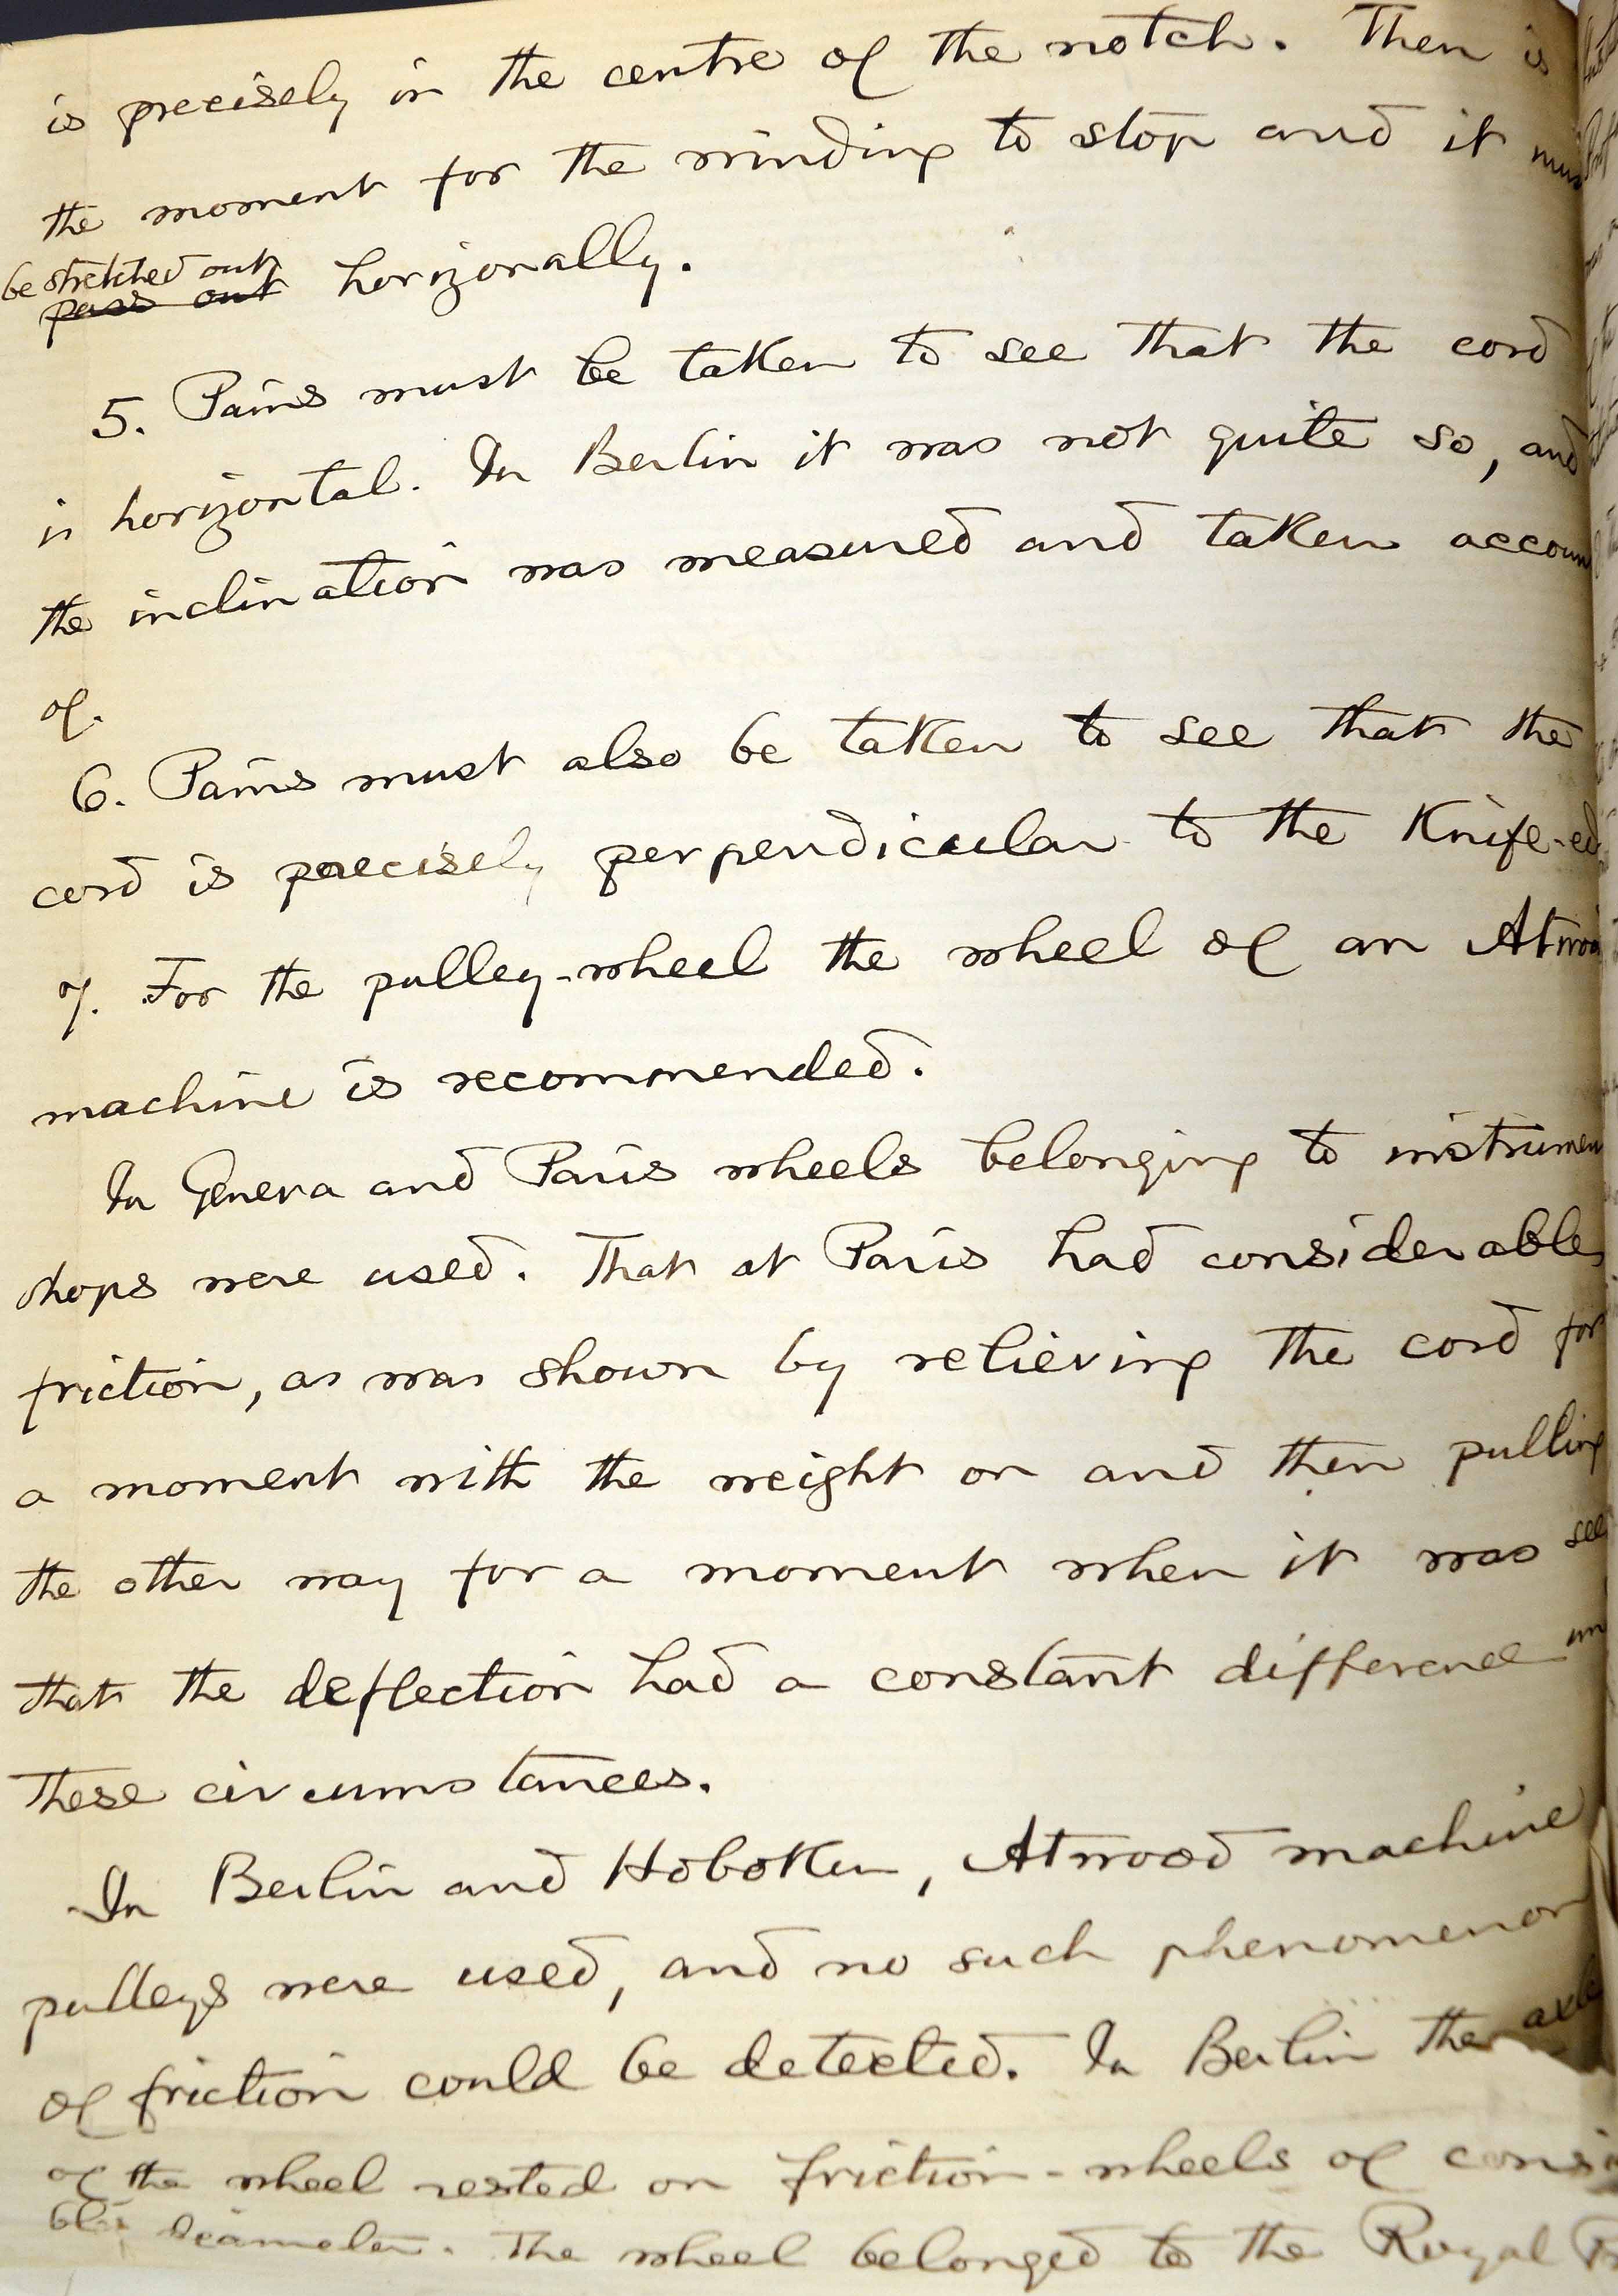 is precisely in the centre of the notch. Then is
the moment for the winding to stop and it
be stretched out
pass out horizonally.
5. Pains must be taken to see that the cord
is horizontal. In Berlin it was not quite so, and
the inclination was measured and taken accoun
of.
6. Pains must also be taken to see that the
cord is precisely perpendicular to the Knife-ed
7. For the pulley-wheel the wheel of an Atwoo
machine is recommended.
In Geneva and Paris wheels belonging to instrumen
shops were used. That at Paris had considerable
friction, as was shown by relieving the cord for
a moment with the weight on and then pulling
the other way for a moment when it was see
that the deflection had a constant difference un
these circumstances.
In Berlin and Hoboken, Atwood machine
pulleys were used, and no such phenomenon
of friction could be detected. In Berlin the axle
of the wheel rested on friction-wheels of consi
ble diameter. The wheel belonged to the Royal